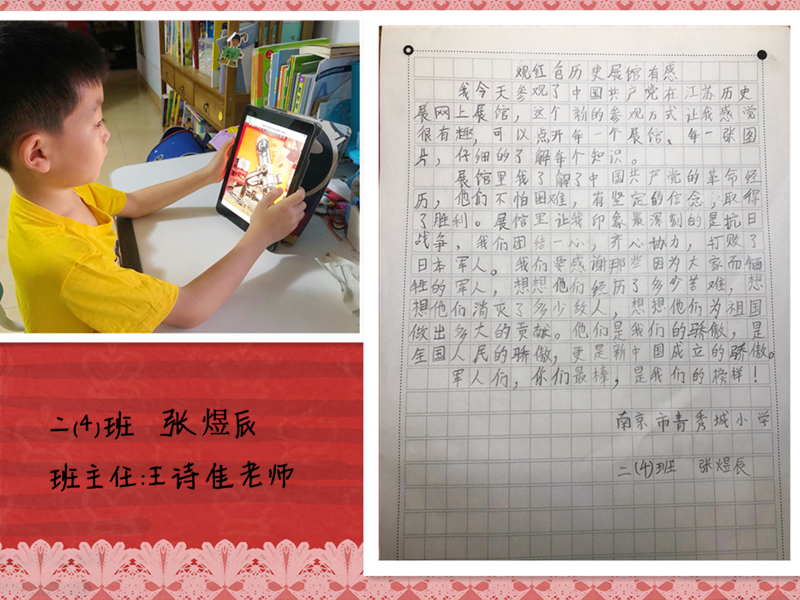 二(4)班 张煜辰
班主任:王诗佳老师
观红色历史展馆有感
我今天参观了中国共产党在江苏历史
展网上展馆，这个新的参观方式让我感觉
很有趣，可以点开每一个展馆、每一张图
片，仔细的了解每个知识。
展馆里我了解了中国共产党的革命经
历，他们不怕困难，有坚定的信念，取得
了胜利。展馆里让我印象最深刻的是抗日
战争，我们团结一心，齐心协力，打败了
日本军人。我们要感谢那些因为大家而牺
牲的军人，想想他们经历了多少苦难，想
想他们消灭了多少敌人，想想他们为祖国
做出多大的贡献。他们是我们的骄傲，是
全国人民的骄傲，更是新中国成立的骄傲。
军人们，你们最棒，是我们的榜样！
南京市青秀城小学
二(4)班 张煜辰